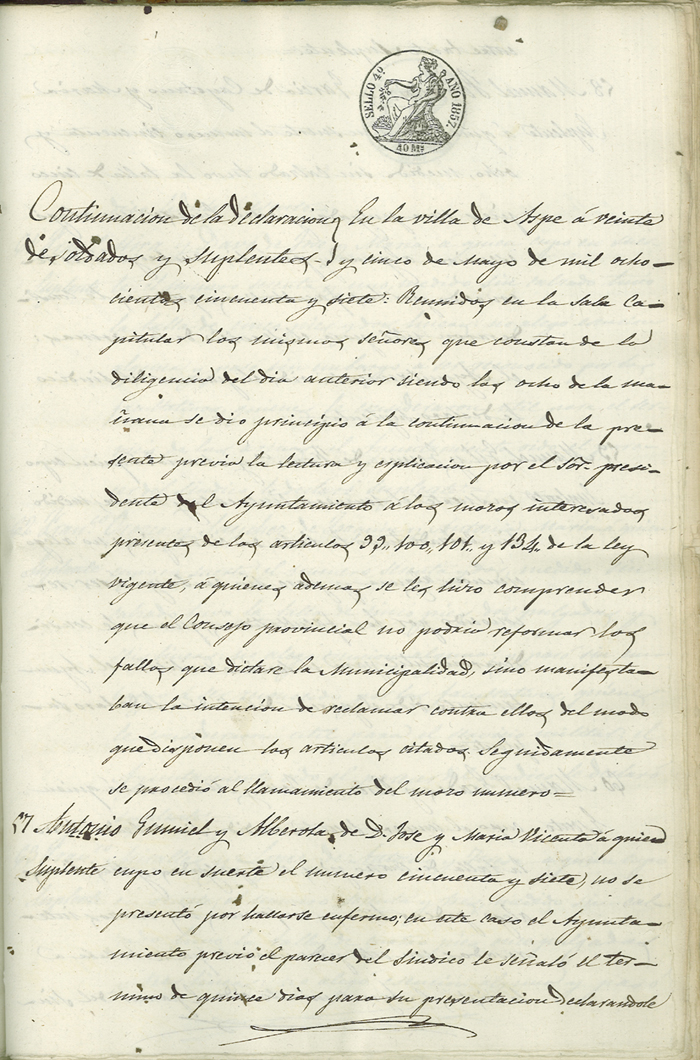 SELLO 4º AÑO 1857.
40 Ms
Continuacion de la declaracion } En la villa de Aspe á veinte
de soldados y suplentes - } y cinco de Mayo de mil ocho-
cientos cincuenta y siete: Reunidos en la Sala Ca-
pitular los mismos señores que constan de la
diligencia del dia anterior siendo las ocho de la ma-
ñana se dio principio á la continuacion de la pre-
sente previa la lectura y esplicacion por el Sor. presi-
dente del Ayuntamiento á los mozos interesados
presentes de los articulos 99,, 100,, 101,, y 134,, de la ley
vigente, á quienes ademas se les hizo comprender
que el Consejo provincial no podria reformar los
fallos que dictare la Municipalidad, sino manifesta-
ban la intencion de reclamar contra ellos del modo
que disponen los articulos citados. Seguidamente
se procedió al llamamiento del mozo numero=
57 Antonio Gumiel y Alberola, de D. Jose y Maria Vicenta á quien
Suplente cupo en suerte el numero cincuenta y siete, no se
presentó por hallarse enfermo; en este caso el Ayunta-
miento previó el parecer del Sindico le señaló el ter-
mino de quince dias para su presentacion declarandole